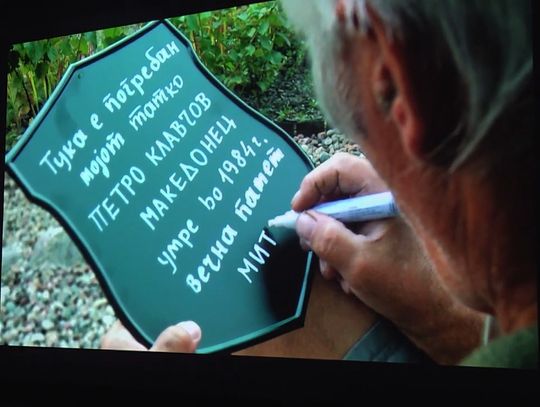 Тука е погребан
мојот татко
ПЕТРО КЛАВЧОВ
МАКЕДОНЕЦ
умре во 1984г.
вечна памет
МИТ